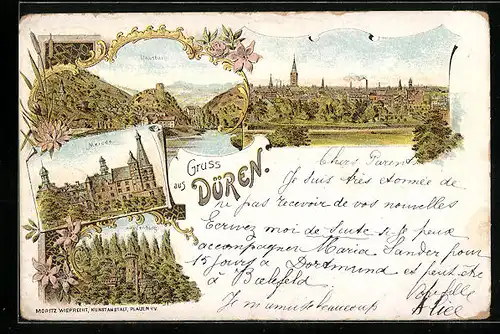 Nideggen
Merode
Gruss
aus
DÜREN.
Chers Parents
Je suis très étonnée de
ne pas recevoir de vos nouvelles
Ecrivez moi de suite si je peux
accompagner Maria Sander pour
15 jours à Dortmund et peut être
à Bielefeld
Votre fille
Je m'amuse beaucoup
Alice
MORITZ WIEPRECHT, KUNSTANSTALT, PLAUEN i/V.